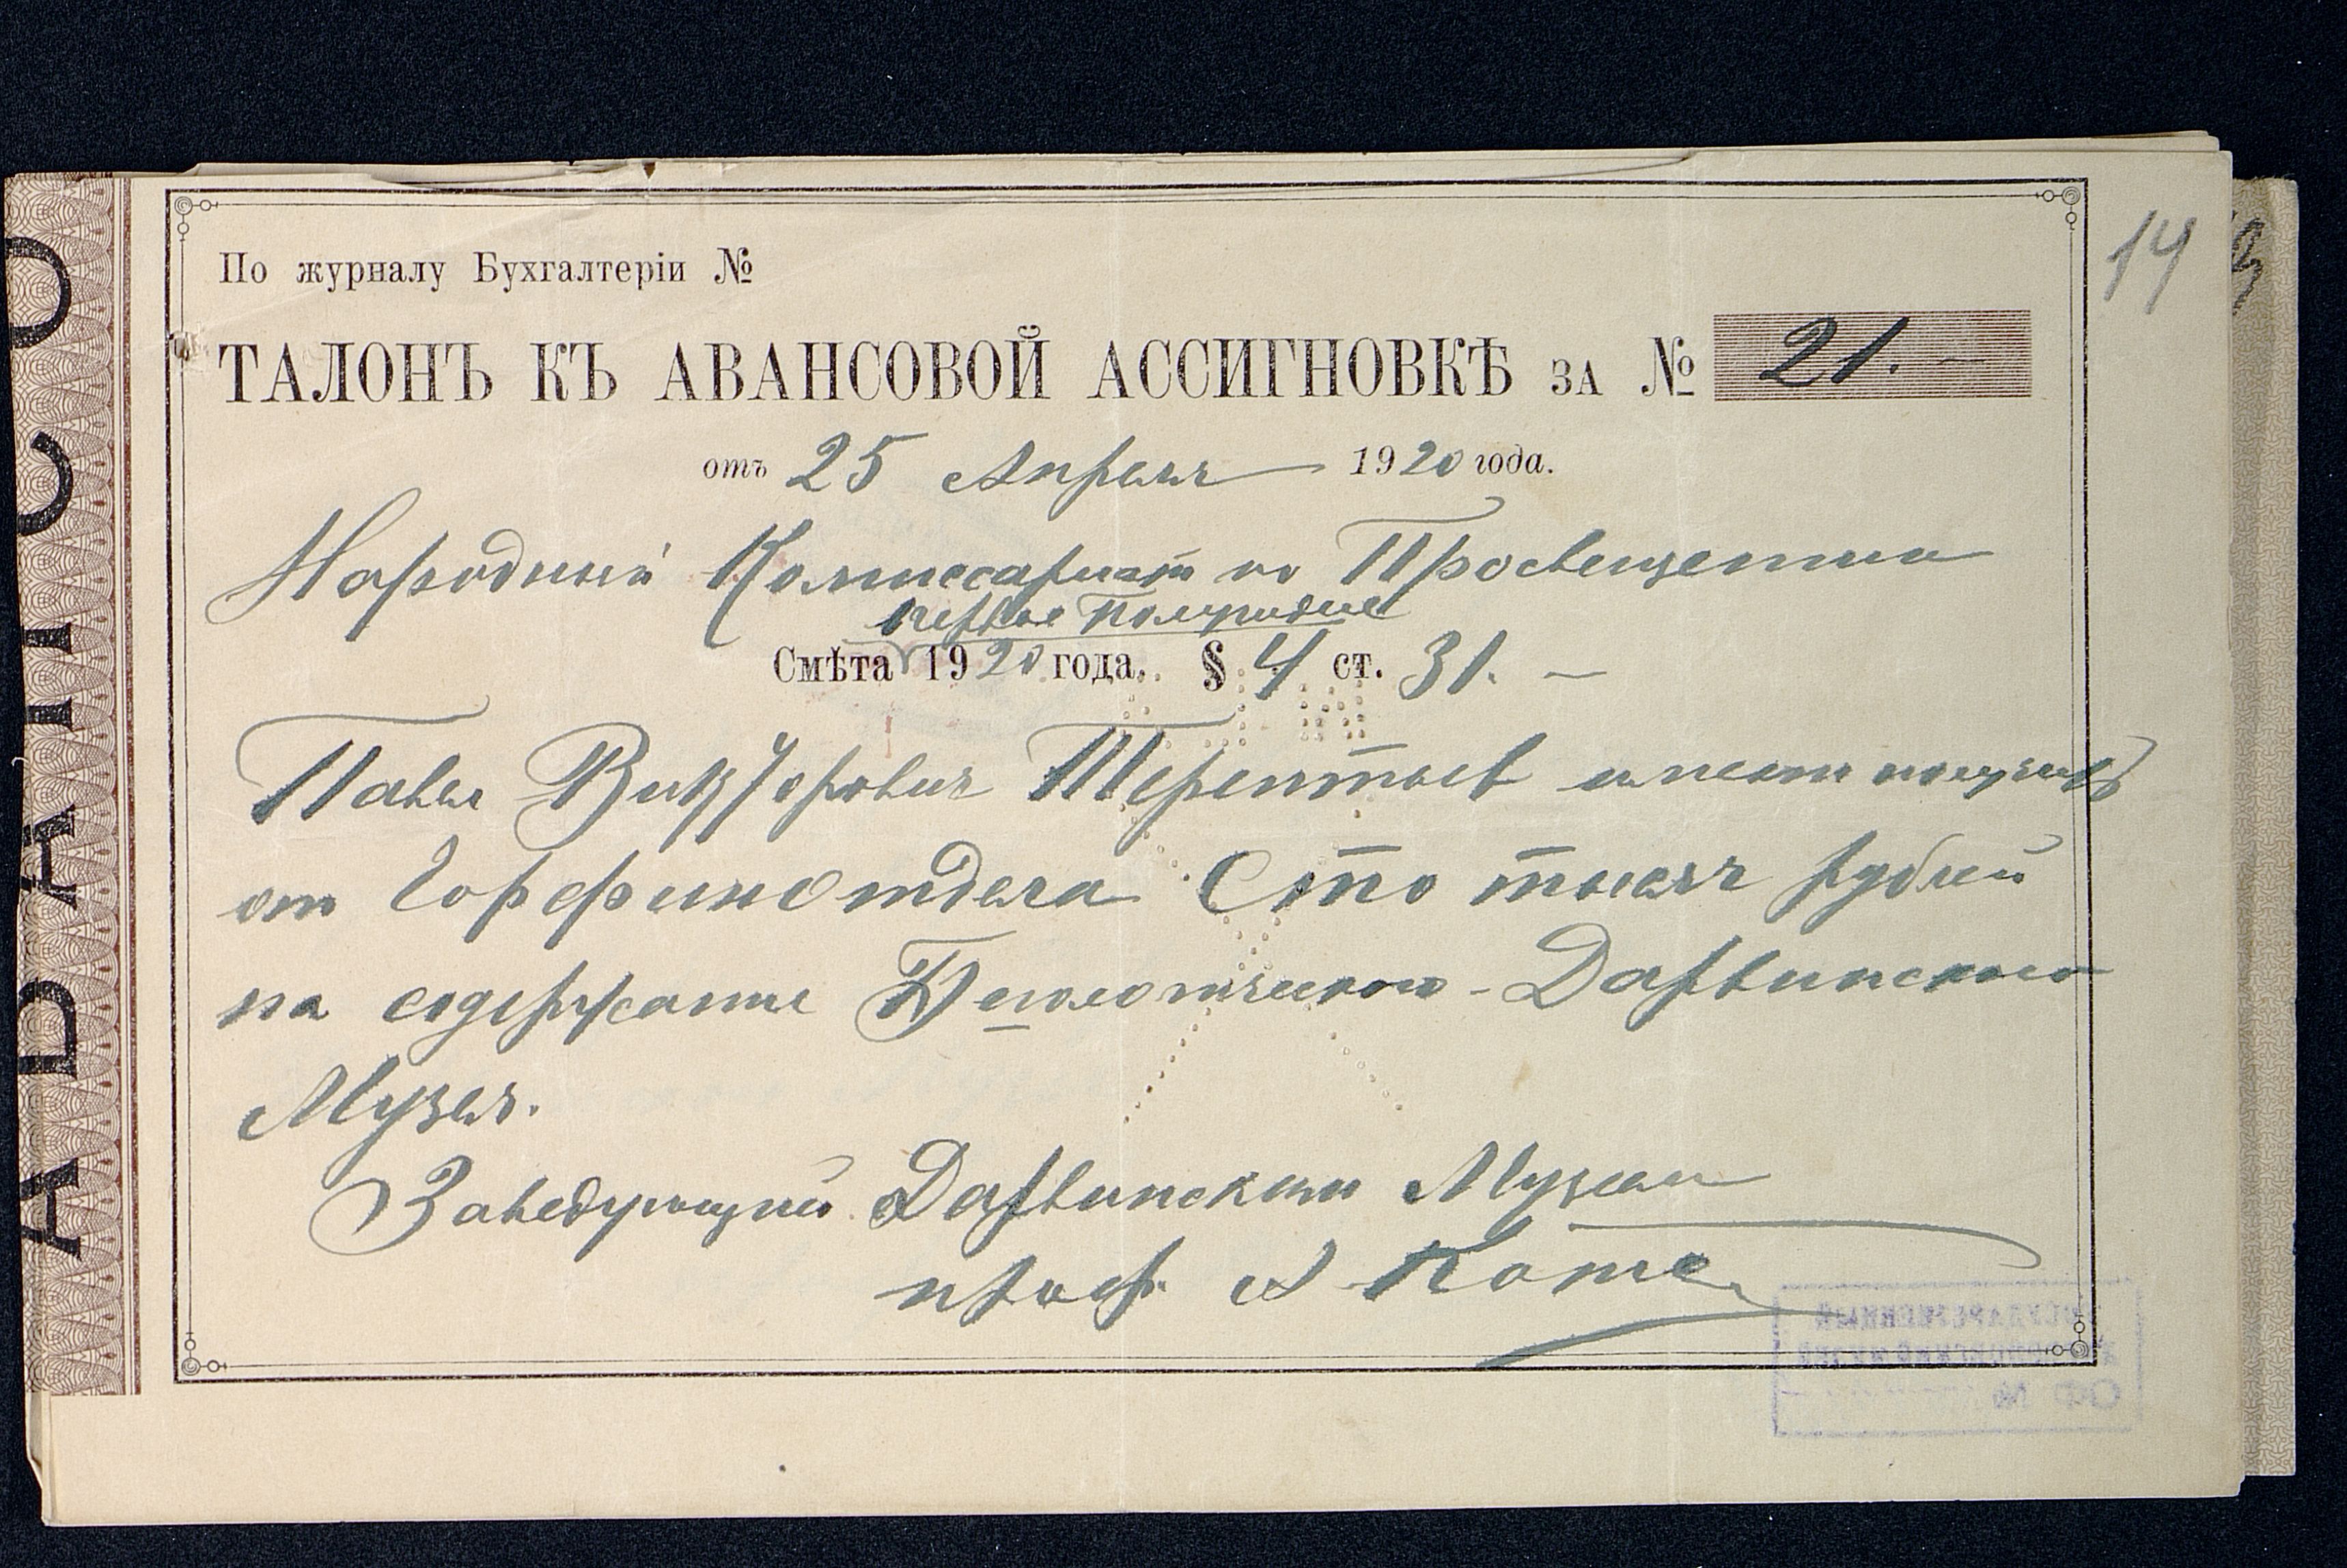 14
По журналу Бухгалтеріи №
ТАЛОНЪ КЪ АВАНСОВОЙ АССИГНОВКѢ ЗА № 21.–
отъ 25 Апреля 1920 года.
Народный Комиссариат по Просвещению
первое полугодие
Смѣта 1920 года. § 4 ст. 31. –
Павел Викторович Терентьев имеет получить
от Горфинотдела Сто тысяч рублей
на содержание Биологического-Дарвинского
Музея.
Заведующий Дарвинским Музеем
проф. А Котс
ГОСУДАРСТВЕННЫЙ
ДАРВИНОВСКИЙ МУЗЕЙ
ОФ №